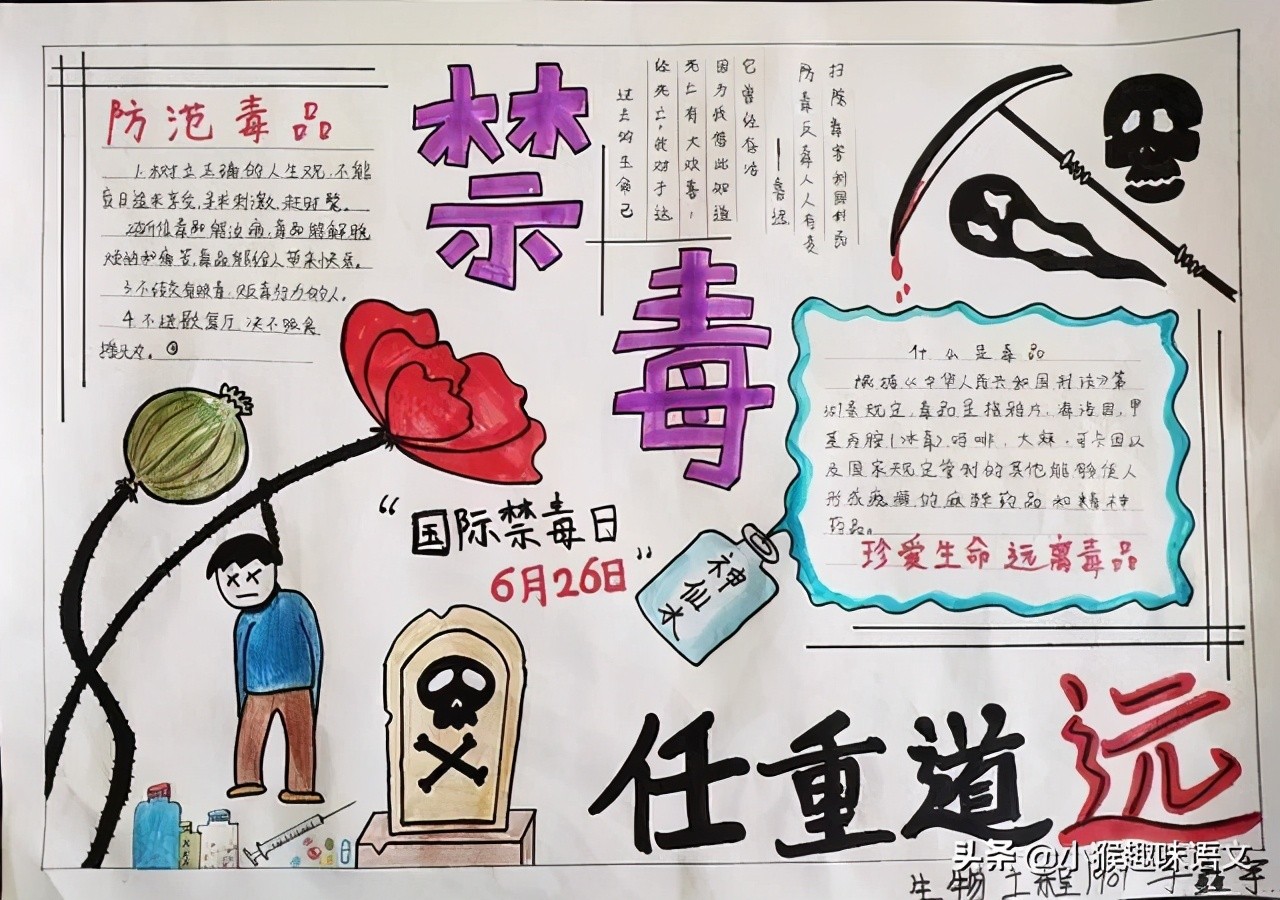 防范毒品
1.树立正确的人生观,不能
盲目追求享受,寻求刺激,赶时髦。
2.听信毒品能治病,毒品能解脱
烦恼和痛苦,毒品能给人带来快乐。
3.不结交有吸毒、贩毒行为的人。
4.不进歌舞厅 决不吸食
摇头丸。
禁
毒
扫除毒害利国利民
防毒反毒人人有责
——鲁迅
它曾经存活
因为我借此知道
死亡有大欢喜,
经死亡,我对于这
过去的生命已
什么是毒品
根据《中华人民共和国刑法》第
357条规定,毒品是指鸦片,海洛因,甲
基苯丙胺(冰毒)吗啡,大麻,可卡因以
及国家规定管制的其他能够使人
形成瘾癖的麻醉药品和精神
药品。
珍爱生命 远离毒品
“国际禁毒日
6月26日”
神仙水
任重道远
头条 @小猴趣味语文
生物工程1901